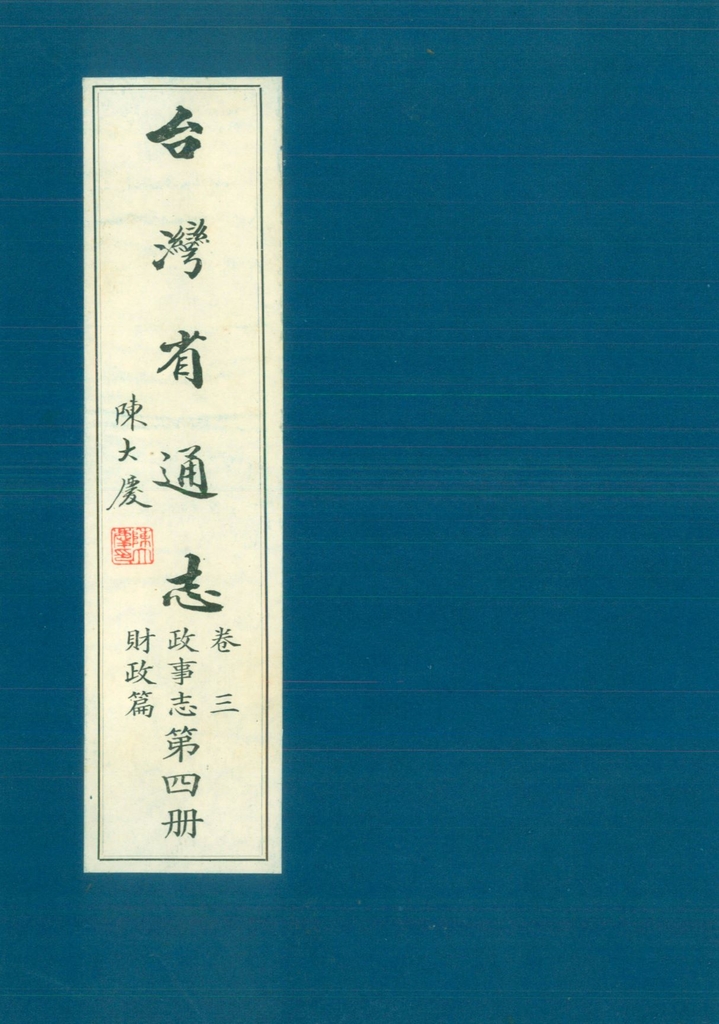 台灣省通志
卷三
政事志
財政篇
第四册
陳大慶